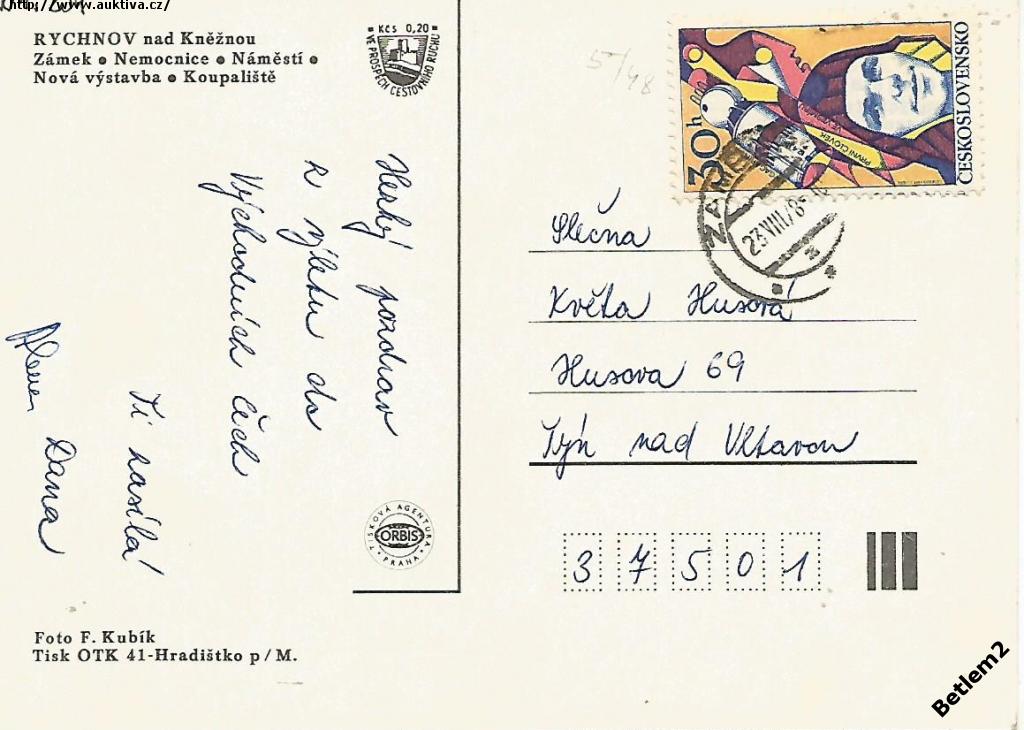 http://www.auktiva.cz/
RYCHNOV nad Kněžnou
Zámek • Nemocnice • Náměstí •
Nová výstavba • Koupaliště
Kčs 0,20
VE PROSPĚCH CESTOVNÍHO RUCHU
5/48
30h
ČESKOSLOVENSKO
PRVNÍ ČLOVĚK
23.VIII.78
Hezký pozdrav
z výletu do
Východních Čech
Ti zasílá
Dana
Slečna
Květa Husová
Husova 69
Týn nad Vltavou
TISKOVÁ AGENTURA
ORBIS
PRAHA
37501
Foto F. Kubík
Tisk OTK 41-Hradištko p/M.
Betlem2